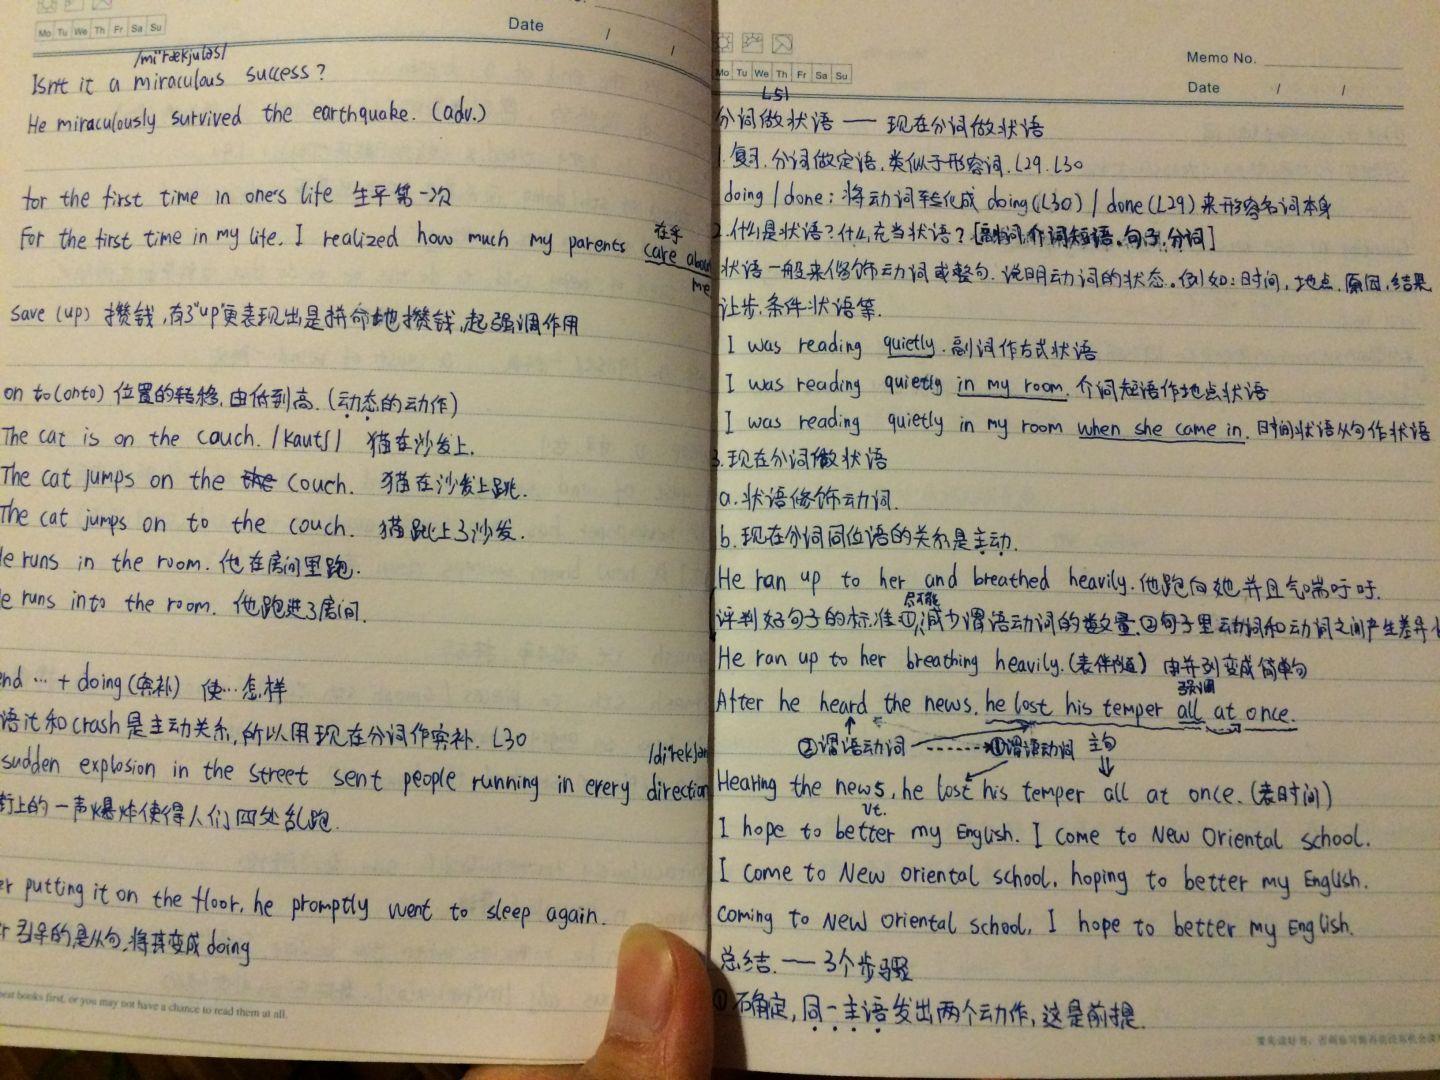 Mo Tu We Th Fr Sa Su
Date / /
Isn't it a miraculous success?
He miraculously survived the earthquake. (adv.)
for the first time in one's life 生平第一次
For the first time in my life, I realized how much my parents care about
在乎
me
save (up) 攒钱,有了"up"更表现出是拼命地攒钱,起强调作用
on to(onto) 位置的转移,由低到高.(动态的动作)
The cat is on the couch. /kautʃ/ 猫在沙发上.
The cat jumps on the couch. 猫在沙发上跳.
The cat jumps on to the couch. 猫跳上了沙发.
He runs in the room. 他在房间里跑.
He runs into the room. 他跑进了房间.
end … + doing(宾补) 使…怎样
语it和crash是主动关系,所以用现在分词作宾补. L30
sudden explosion in the street sent people running in every direction
街上的一声爆炸使得人们四处乱跑.
er putting it on the floor, he promptly went to sleep again.
er 引导的是从句,将其变成doing
best books first, or you may not have a chance to read them at all.
Memo No.
Mo Tu We Th Fr Sa Su
Date / /
L51
分词做状语 —— 现在分词做状语
1.复习.分词做定语,类似于形容词. L29. L30
doing / done: 将动词转化成 doing(L30) / done(L29)来形容名词本身
2.什么是状语?什么充当状语?[副词,介词短语,句子,分词]
状语一般来修饰动词或整句.说明动词的状态。例如:时间,地点,原因,结果
让步.条件状语等.
I was reading quietly. 副词作方式状语
I was reading quietly in my room. 介词短语作地点状语
I was reading quietly in my room when she came in. 时间状语从句作状语
3.现在分词做状语
a.状语修饰动词.
b.现在分词同位语的关系是主动.
He ran up to her and breathed heavily. 他跑向她并且气喘吁吁.
尽可能
评判好句子的标准①减少谓语动词的数量.②句子里动词和动词之间产生差异
He ran up to her breathing heavily.(表伴随) 由并列变成简单句
强调
After he heard the news, he lost his temper all at once.
②谓语动词 ①谓语动词 主句
Hearing the news, he lost his temper all at once.(表时间)
vt.
I hope to better my English. I come to New Oriental school.
I come to New oriental school, hoping to better my English.
coming to New oriental school, I hope to better my English.
总结. —— 3个步骤
①确定,同一主语发出两个动作,这是前提.